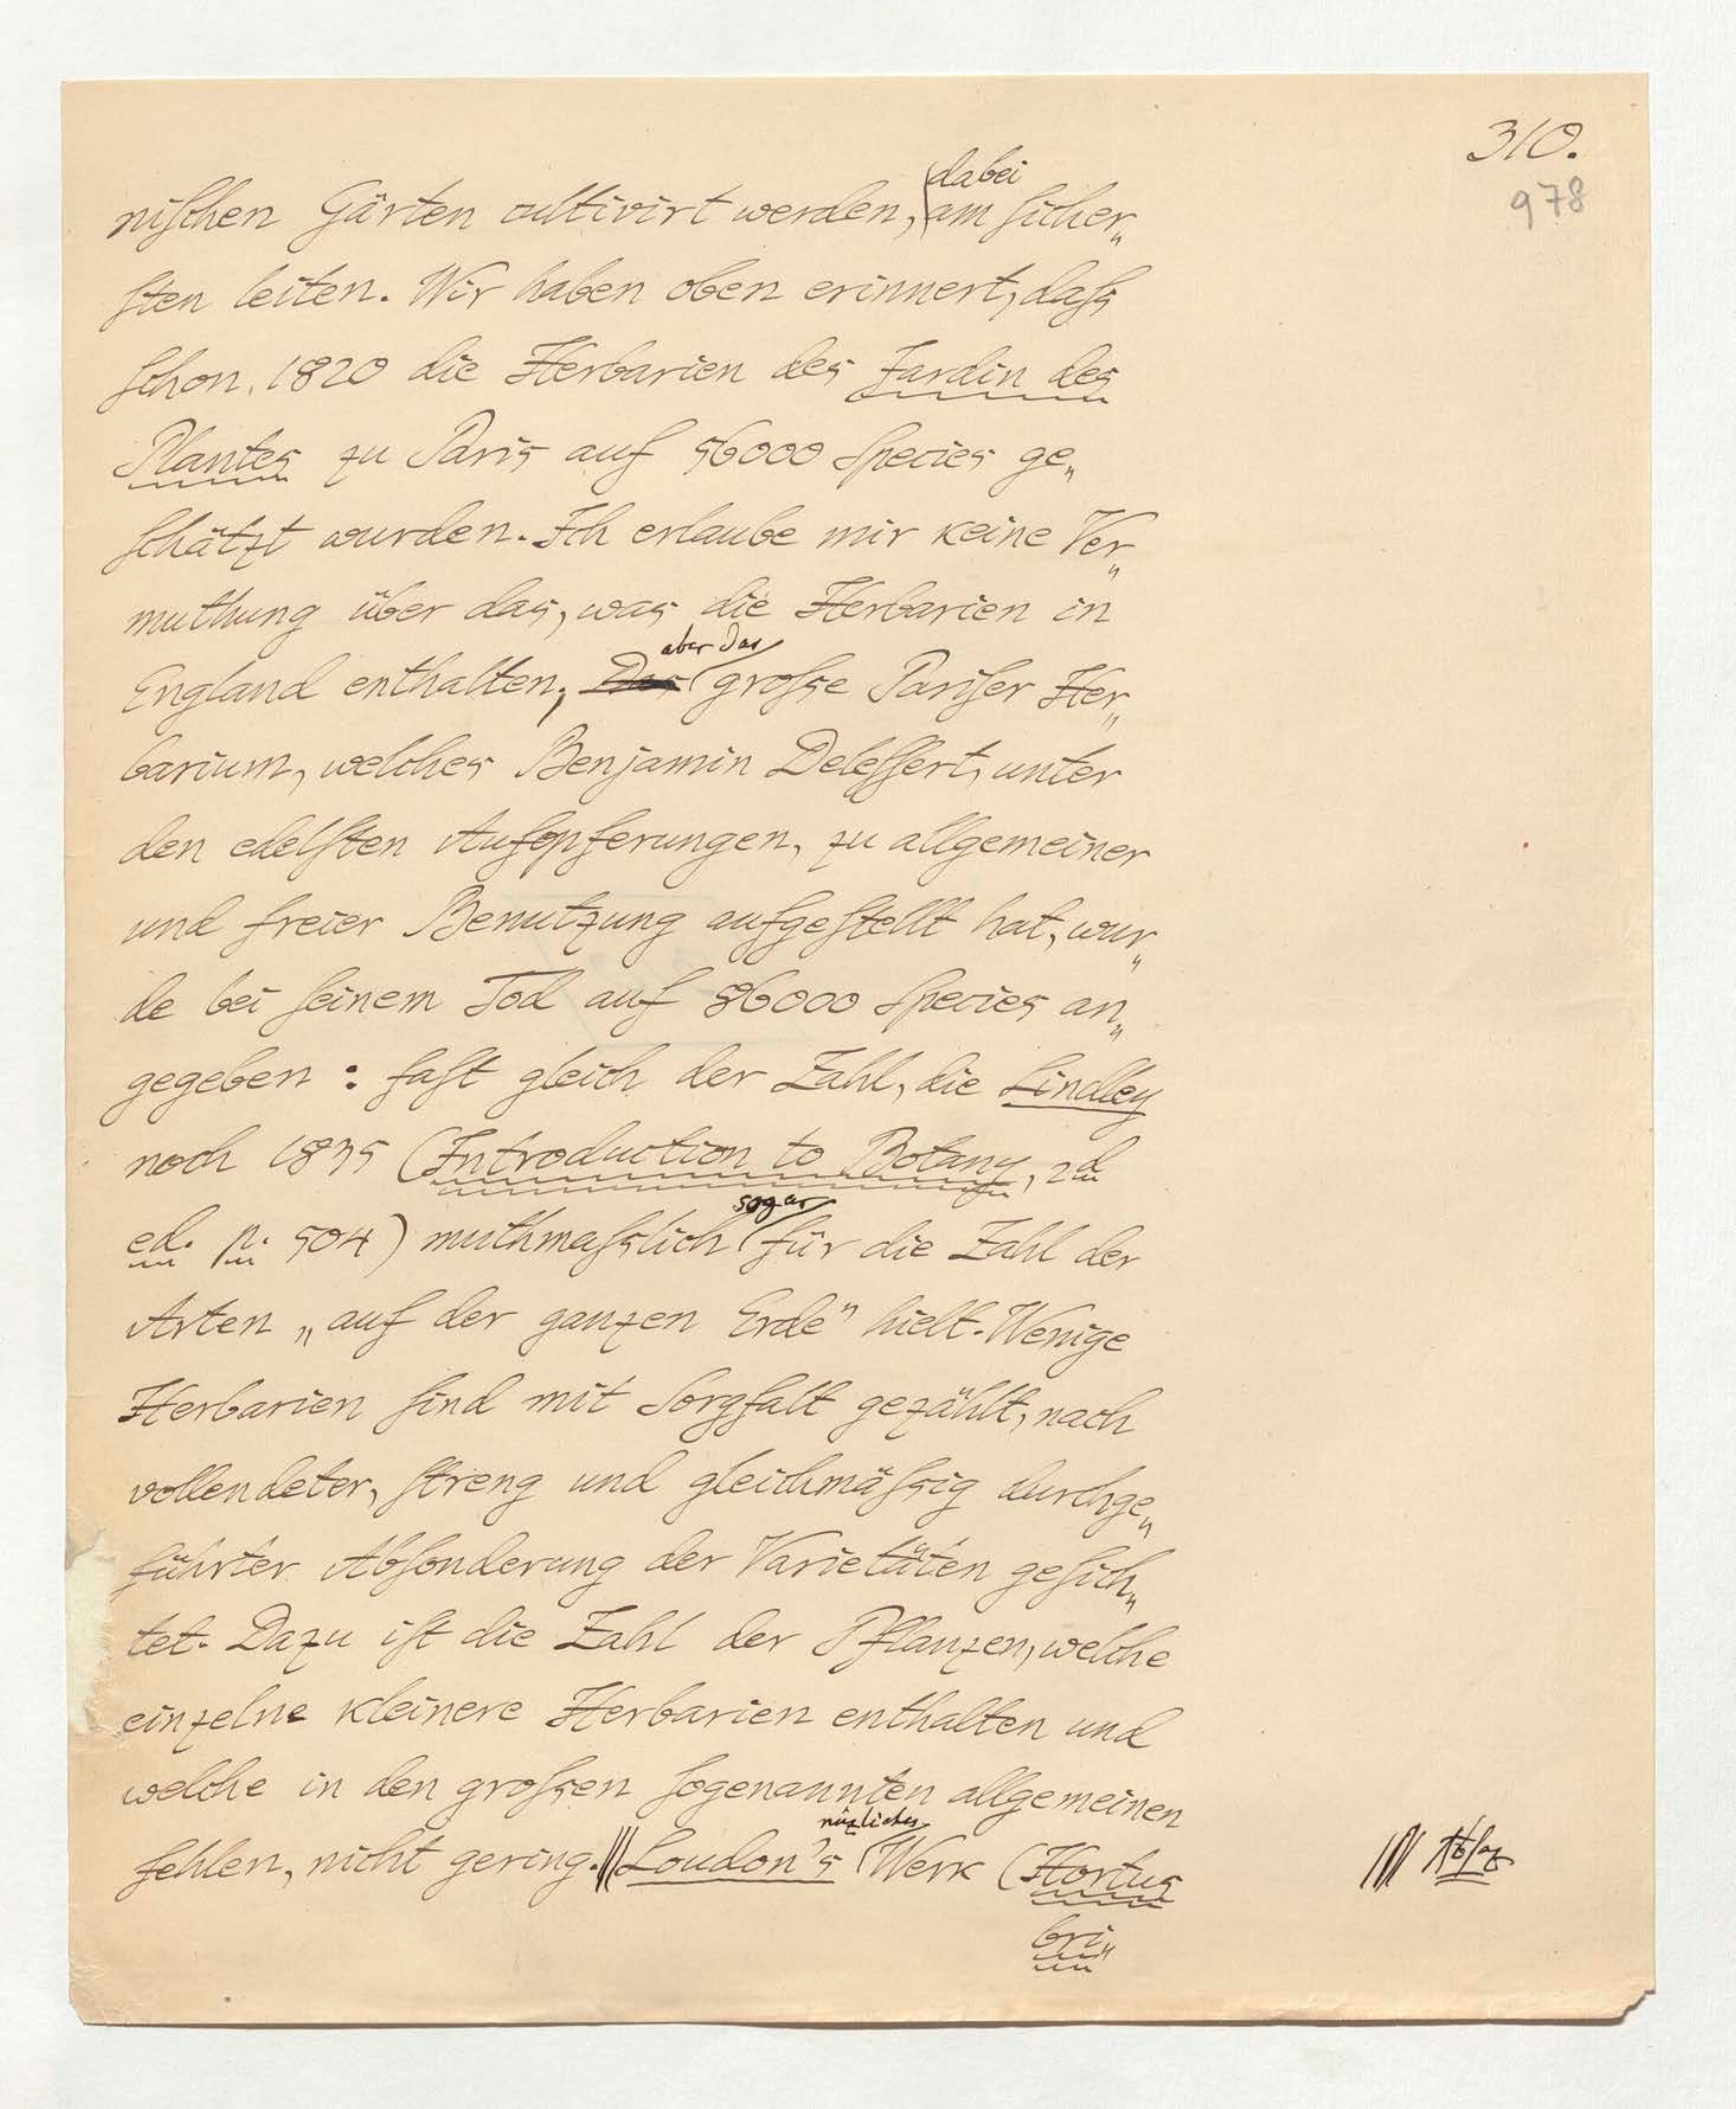 310.
978
dabei
niſchen Gärten cultivirt werden, am ſicher„
ſten leiten. Wir haben oben erinnert, daſs
ſchon 1820 die Herbarien des Jardin des
Plantes zu Paris auf 56000 Species ge„
ſchätzt wurden. Ich erlaube mir keine Ver„
muthung über das, was die Herbarien in
aber das
England enthalten; Das groſse Pariſer Her„
barium, welches Benjamin Deleſſert, unter
den edelſten Aufopferungen, zu allgemeiner
und freier Benutzung aufgeſtellt hat, wur„
de bei ſeinem Tod auf 86000 Species an„
gegeben: faſt gleich der Zahl, die Lindley
noch 1835 (Introduction to Botany, 2d
sogar
ed. p. 504) muthmaſslich für die Zahl der
Arten „auf der ganzen Erde" hielt. Wenige
Herbarien ſind mit Sorgfalt gezählt, nach
vollendeter, ſtreng und gleichmäſsig durchge„
führter Abſonderung der Varietäten geſich„
tet. Dazu iſt die Zahl der Pflanzen, welche
einzelne kleinere Herbarien enthalten und
welche in den groſsen ſogenannten allgemeinen
nüzliches
fehlen, nicht gering. Loudon's Werk (Hortus
bri„